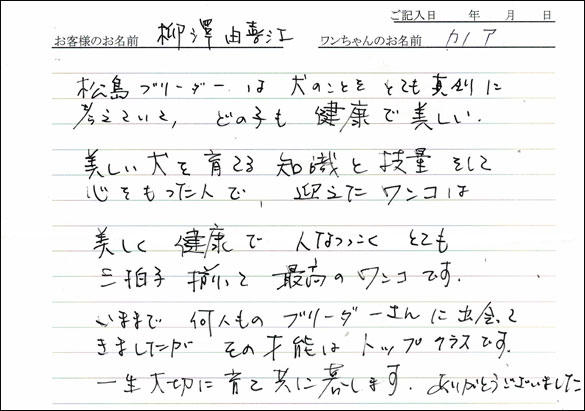 ご記入日 年 月 日
お客様のお名前 柳澤由喜江 ワンちゃんのお名前 カノア
松島ブリーダーは犬のことをとても真剣に
考えていて、どの子も健康で美しい.
美しい犬を育てる知識と技量そして
心をもった人で、迎えたワンコは
美しく健康で人なつっこくとても
三拍子揃って最高のワンコです.
いままで何人ものブリーダーさんに出会って
きましたがその才能はトップクラスです.
一生大切に育て共に暮します. ありがとうございました